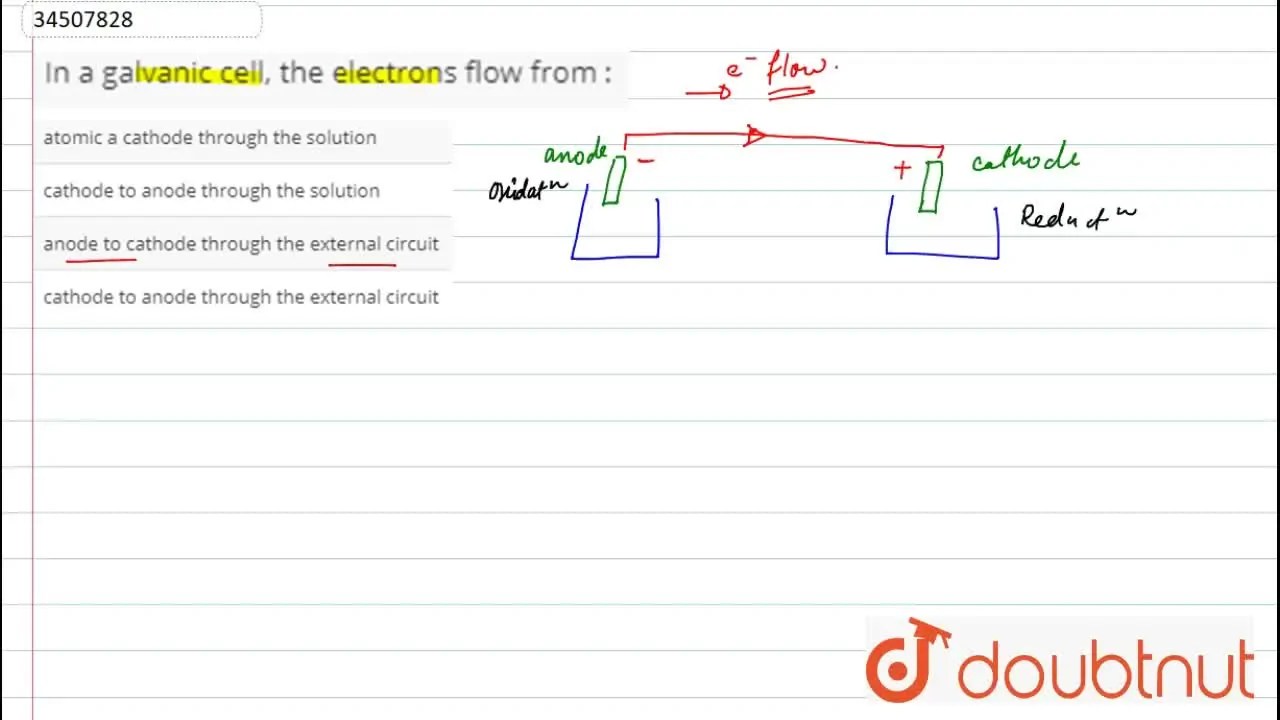 34507828
In a galvanic cell, the electrons flow from :
atomic a cathode through the solution
cathode to anode through the solution
anode to cathode through the external circuit
cathode to anode through the external circuit
e⁻ flow.
anode
−
+
cathode
Oxidatⁿ
Reductⁿ
doubtnut